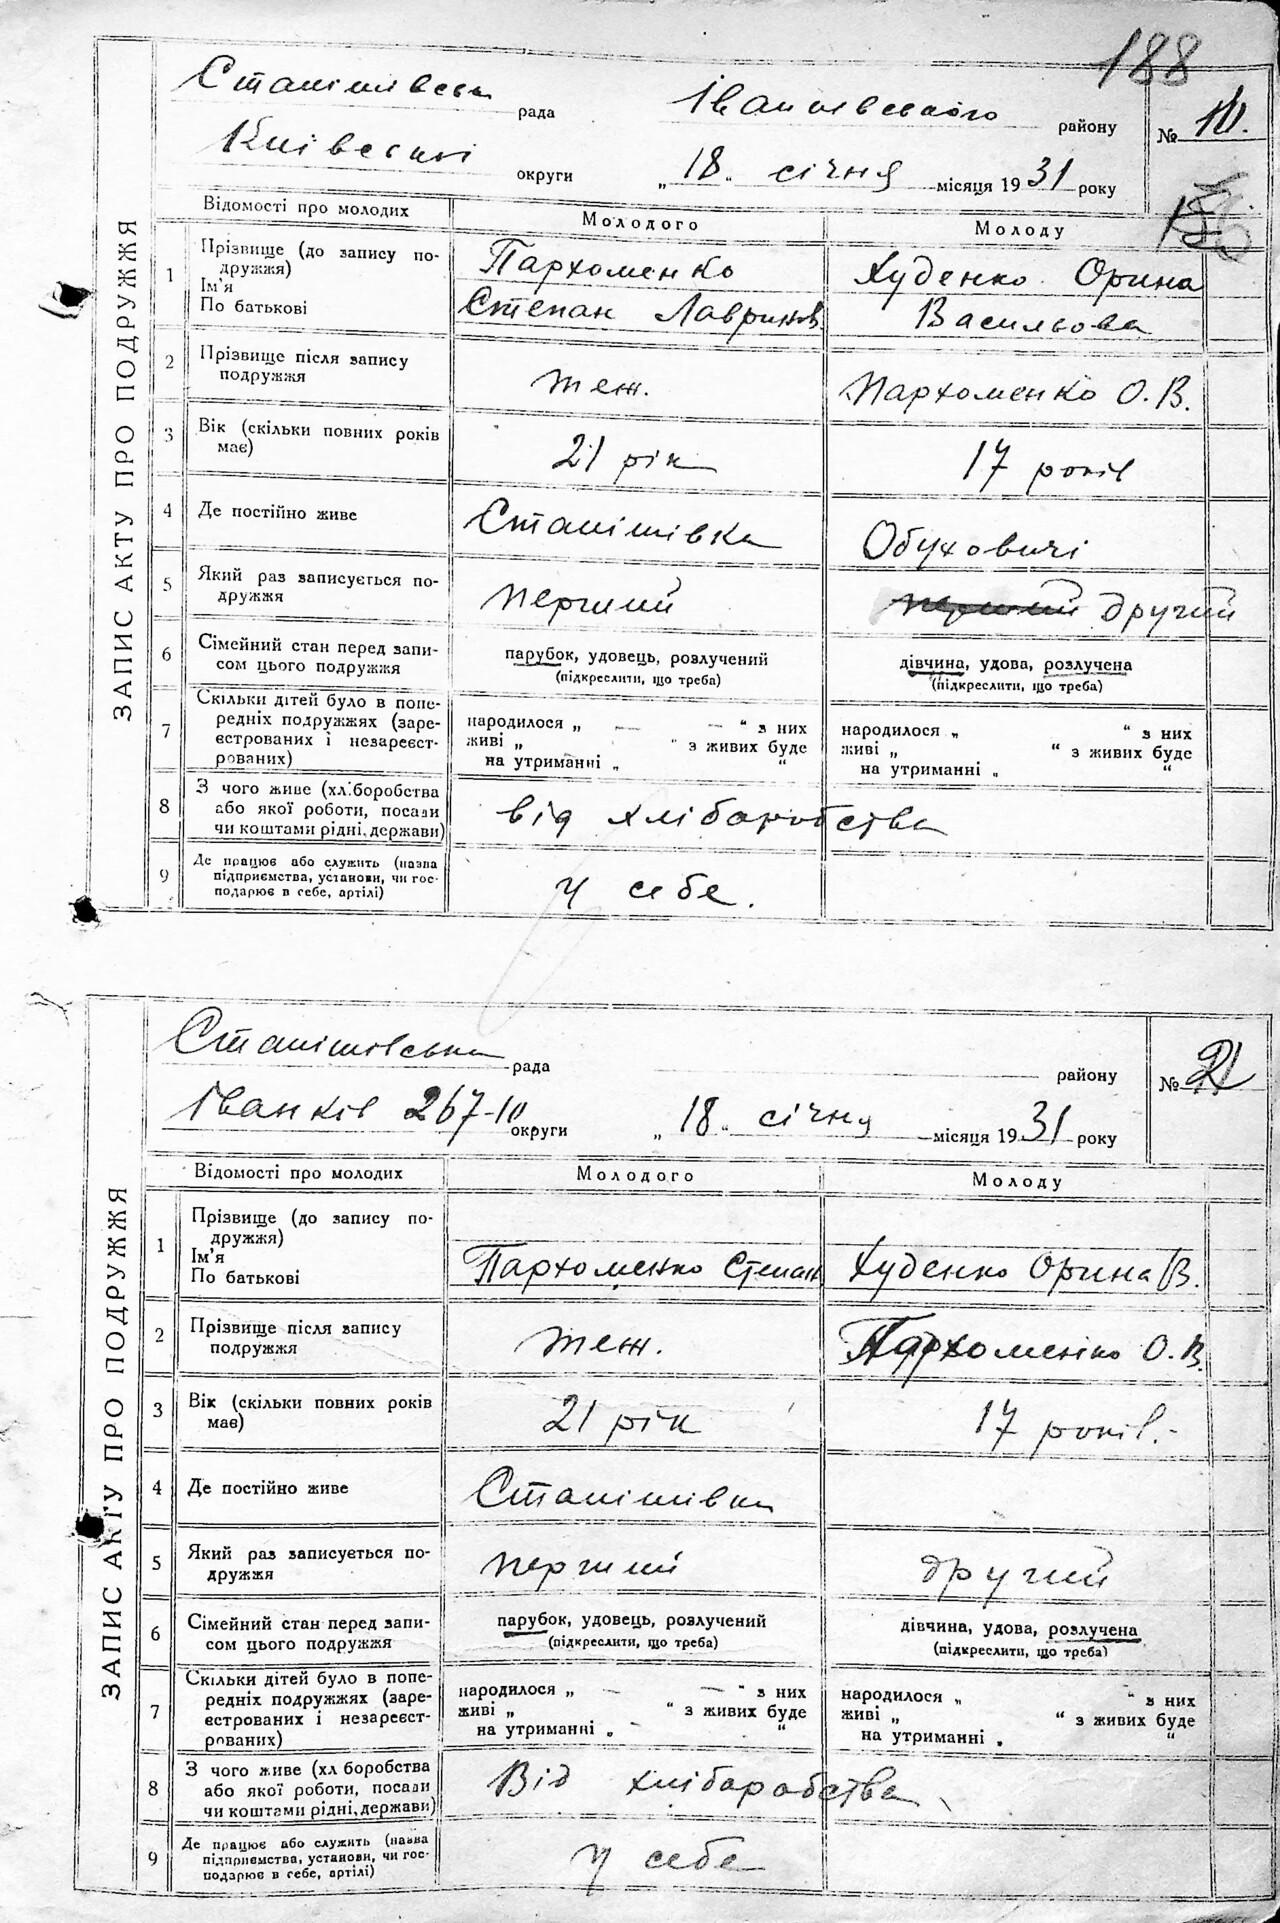 188
ЗАПИС АКТУ ПРО ПОДРУЖЖЯ
Станішівська рада Іванківського району № 10.
Київської округи „18“ січня місяця 1931 року
Відомості про молодих Молодого Молоду
1 Прізвище (до запису по-
дружжя)
Ім'я
По батькові
Пархоменко
Степан Лавринов
Худенко Орина
Васильова
2 Прізвище після запису
подружжя
теж. Пархоменко О. В.
3 Вік (скільки повних років
має)
21 рік 17 років
4 Де постійно живе Станішівка Обуховичі
5 Який раз записується по-
дружжя
перший перший другий
6 Сімейний стан перед запи-
сом цього подружжя
парубок, удовець, розлучений
(підкреслити, що треба)
дівчина, удова, розлучена
(підкреслити, що треба)
7 Скільки дітей було в попе-
редніх подружжях (заре-
єстрованих і незареєст-
рованих)
народилося „ — — “ з них
живі „ “ з живих буде
на утриманні „ “
народилося „ “ з них
живі „ “ з живих буде
на утриманні „ “
8 З чого живе (хліборобства
або якої роботи, посади
чи коштами рідні, держави)
від хліборобства
9 Де працює або служить (назва
підприємства, установи, чи гос-
подарює в себе, артілі)
у себе.
ЗАПИС АКТУ ПРО ПОДРУЖЖЯ
Станішівська рада району №
Іванків 267-10 округи „18“ січня місяця 1931 року
Відомості про молодих Молодого Молоду
1 Прізвище (до запису по-
дружжя)
Ім'я
По батькові
Пархоменко Степан Худенко Орина В.
2 Прізвище після запису
подружжя
теж. Пархоменко О. В.
3 Вік (скільки повних років
має)
21 рік 17 років.-
4 Де постійно живе Станішівка
5 Який раз записується по-
дружжя
перший другий
6 Сімейний стан перед запи-
сом цього подружжя
парубок, удовець, розлучений
(підкреслити, що треба)
дівчина, удова, розлучена
(підкреслити, що треба)
7 Скільки дітей було в попе-
редніх подружжях (заре-
єстрованих і незареєст-
рованих)
народилося „ — — “ з них
живі „ “ з живих буде
на утриманні „ “
народилося „ “ з них
живі „ “ з живих буде
на утриманні „ “
8 З чого живе (хл боробства
або якої роботи, посади
чи коштами рідні, держави)
Від хліборобства
9 Де працює або служить (назва
підприємства, установи, чи гос-
подарює в себе, артілі)
у себе